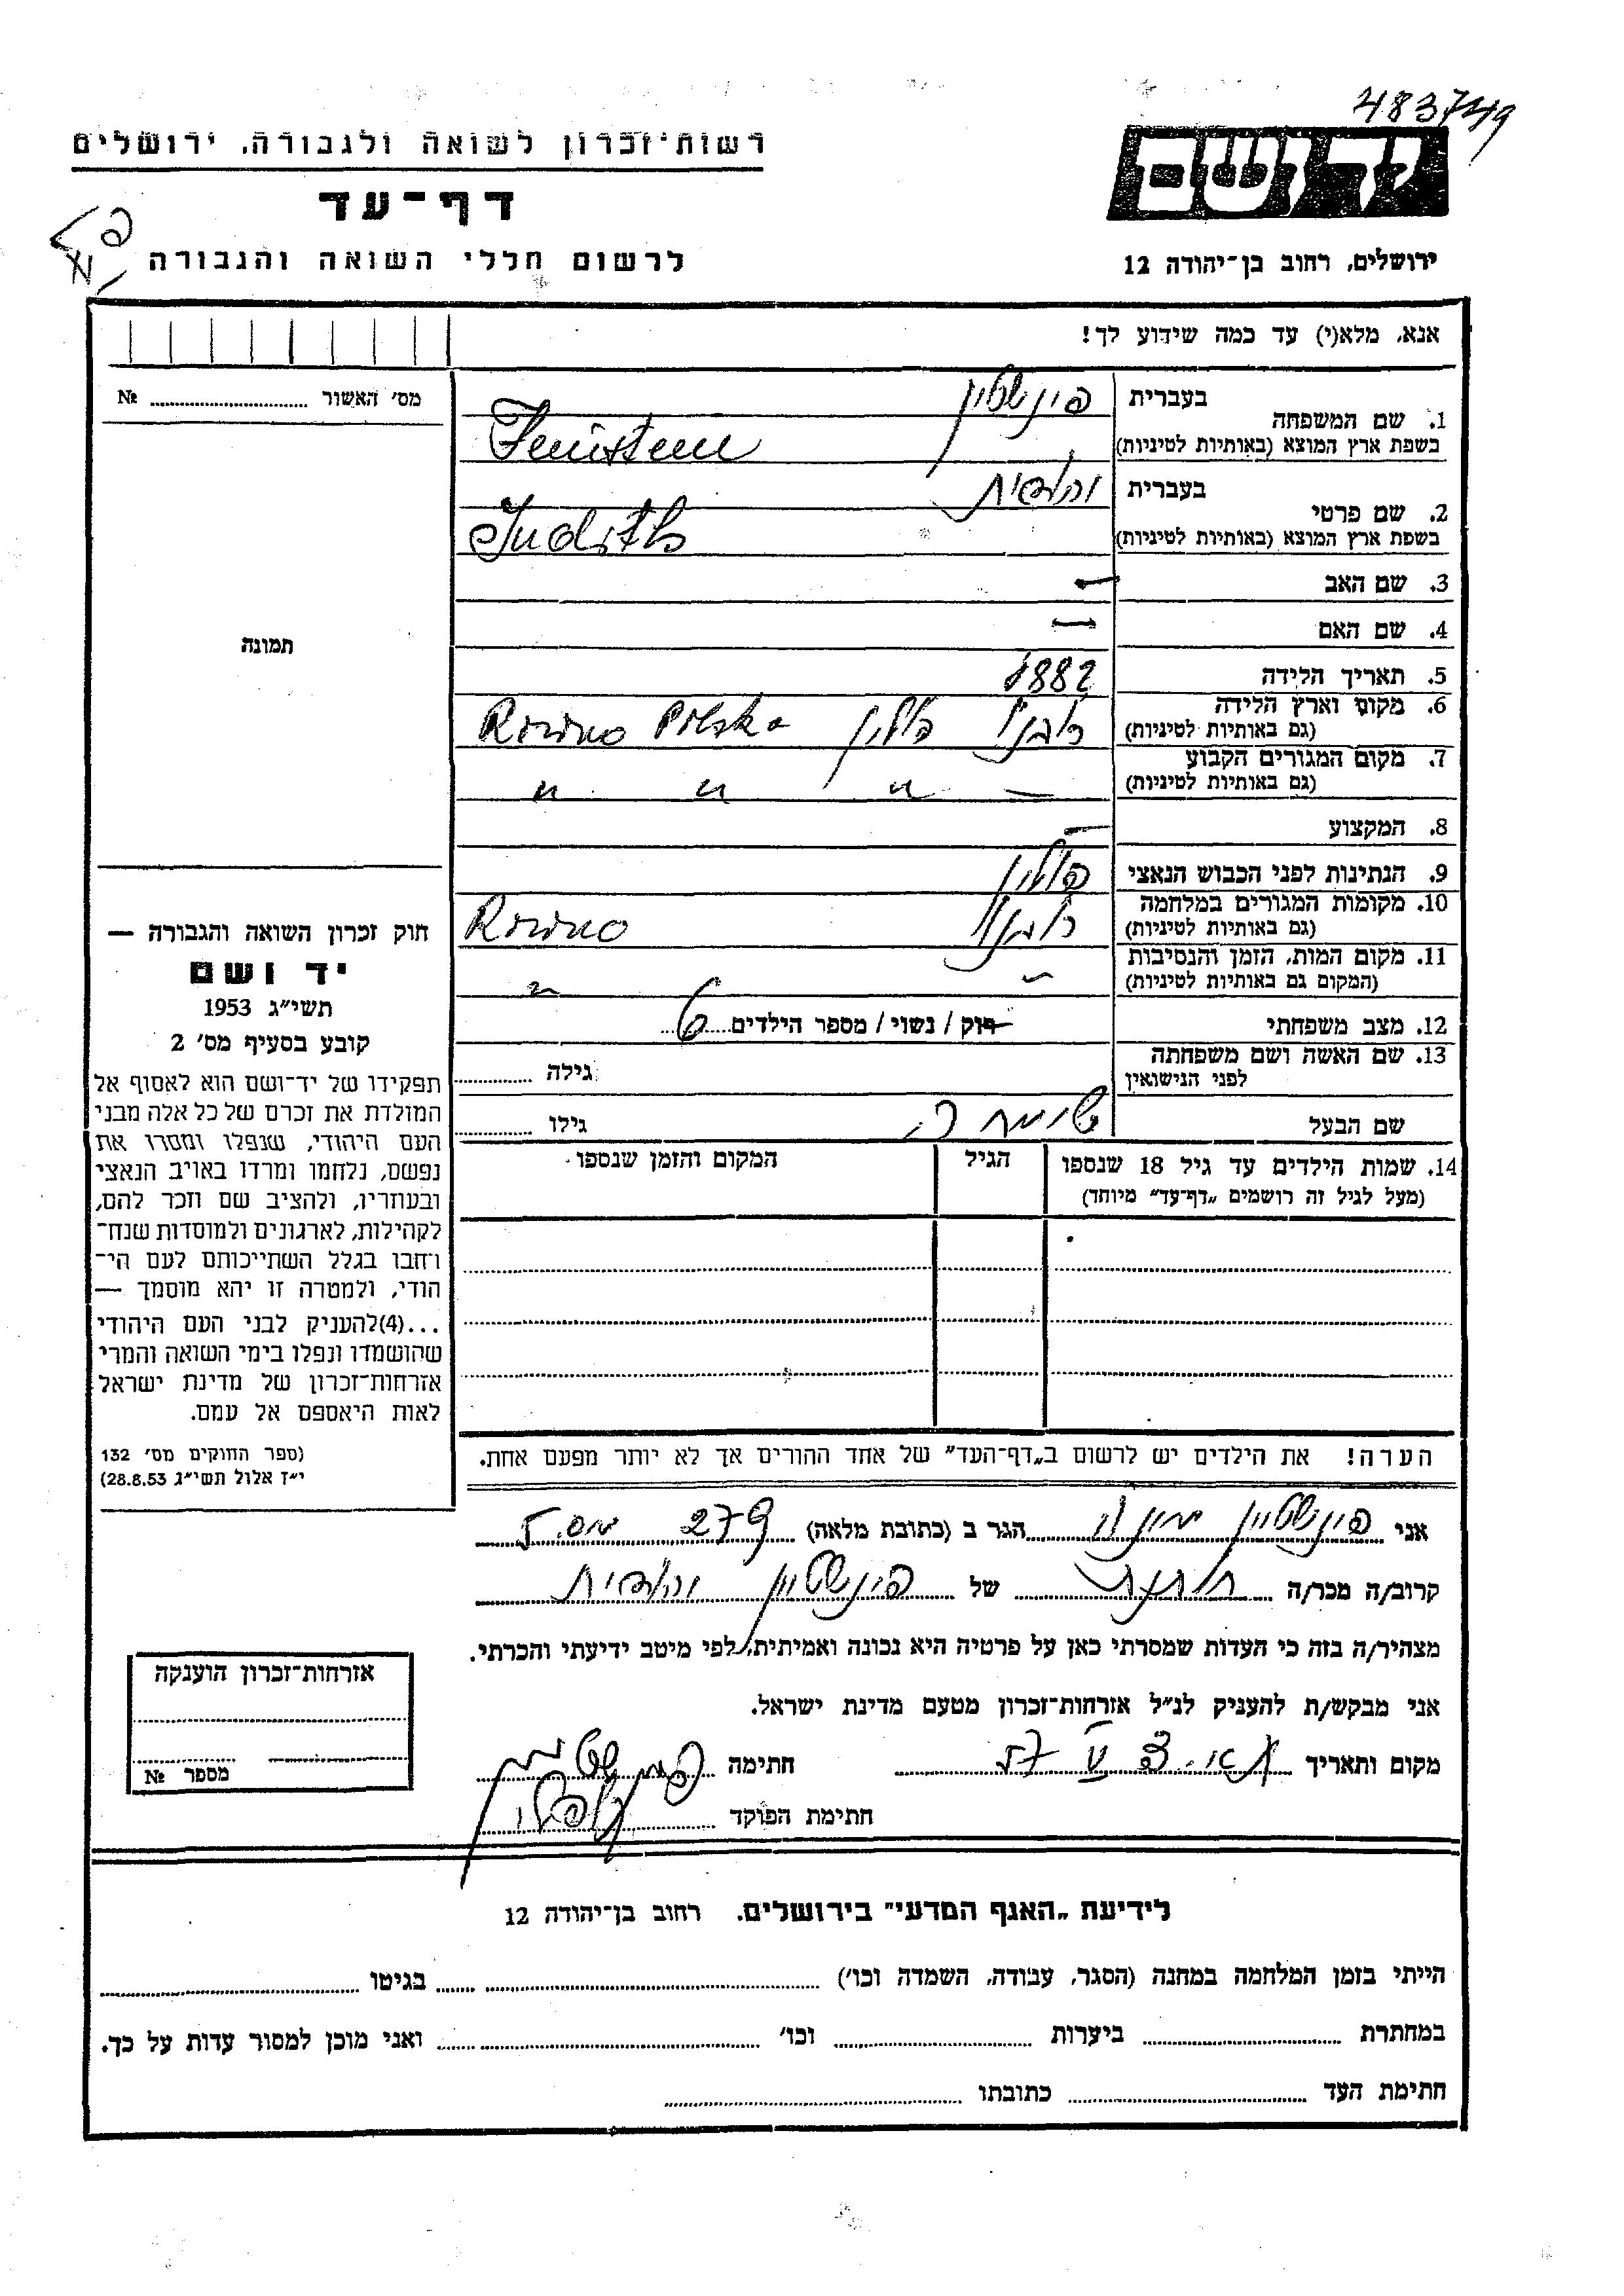 483749
רשות־זכרון לשואה ולגבורה, ירושלים
יד ושם
דף־עד
לרשום חללי השואה והגבורה
ירושלים, רחוב בן־יהודה 12
אנא, מלא(י) עד כמה שידוע לך!
מס׳ האשור № 
1. שם המשפחה בעברית פינשטיין
בשפת ארץ המוצא (באותיות לטיניות)
2. שם פרטי בעברית יהודית
בשפת ארץ המוצא (באותיות לטיניות) Judith
3. שם האב —
4. שם האם —
תמונה
5. תאריך הלידה 1882
6. מקום וארץ הלידה (גם באותיות לטיניות) רובנו פולין Rowno Polska
7. מקום המגורים הקבוע (גם באותיות לטיניות) — " " "
8. המקצוע —
9. הנתינות לפני הכבוש הנאצי פולין
10. מקומות המגורים במלחמה (גם באותיות לטיניות) רובנו Rowno
11. מקום המות, הזמן והנסיבות (המקום גם באותיות לטיניות) " "
12. מצב משפחתי רווק / נשוי / מספר הילדים 6
13. שם האשה ושם משפחתה לפני הנישואין גילה
שם הבעל גילו
14. שמות הילדים עד גיל 18 שנספו (מעל לגיל זה רושמים „דף־עד״ מיוחד)
הגיל
המקום והזמן שנספו
חוק זכרון השואה והגבורה —
יד ושם
תשי״ג 1953
קובע בסעיף מס׳ 2
תפקידו של יד־ושם הוא לאסוף אל
המולדת את זכרם של כל אלה מבני
העם היהודי, שנפלו ומסרו את
נפשם, נלחמו ומרדו באויב הנאצי
ובעוזריו, ולהציב שם וזכר להם,
לקהילות, לארגונים ולמוסדות שנח־
רבו בגלל השתייכותם לעם הי־
הודי, ולמטרה זו יהא מוסמך —
...(4)להעניק לבני העם היהודי
שהושמדו ונפלו בימי השואה והמרי
אזרחות־זכרון של מדינת ישראל
לאות היאספם אל עמם.
(ספר החוקים מס׳ 132
י״ז אלול תשי״ג 28.8.53)
הערה! את הילדים יש לרשום ב„דף־העד״ של אחד ההורים אך לא יותר מפעם אחת.
אני פינשטיין הגר ב (כתובת מלאה) 279
קרוב/ה מכר/ה של פינשטיין יהודית
מצהיר/ה בזה כי העדות שמסרתי כאן על פרטיה היא נכונה ואמיתית, לפי מיטב ידיעתי והכרתי.
אני מבקש/ת להעניק לנ״ל אזרחות־זכרון מטעם מדינת ישראל.
מקום ותאריך חתימה
חתימת הפוקד
אזרחות־זכרון הוענקה
מספר №
לידיעת „האגף המדעי״ בירושלים, רחוב בן־יהודה 12
הייתי בזמן המלחמה במחנה (הסגר, עבודה, השמדה וכו׳) בגיטו
במחתרת ביערות וכו׳ ואני מוכן למסור עדות על כך.
חתימת העד כתובתו